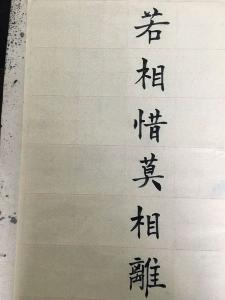 若相惜莫相離